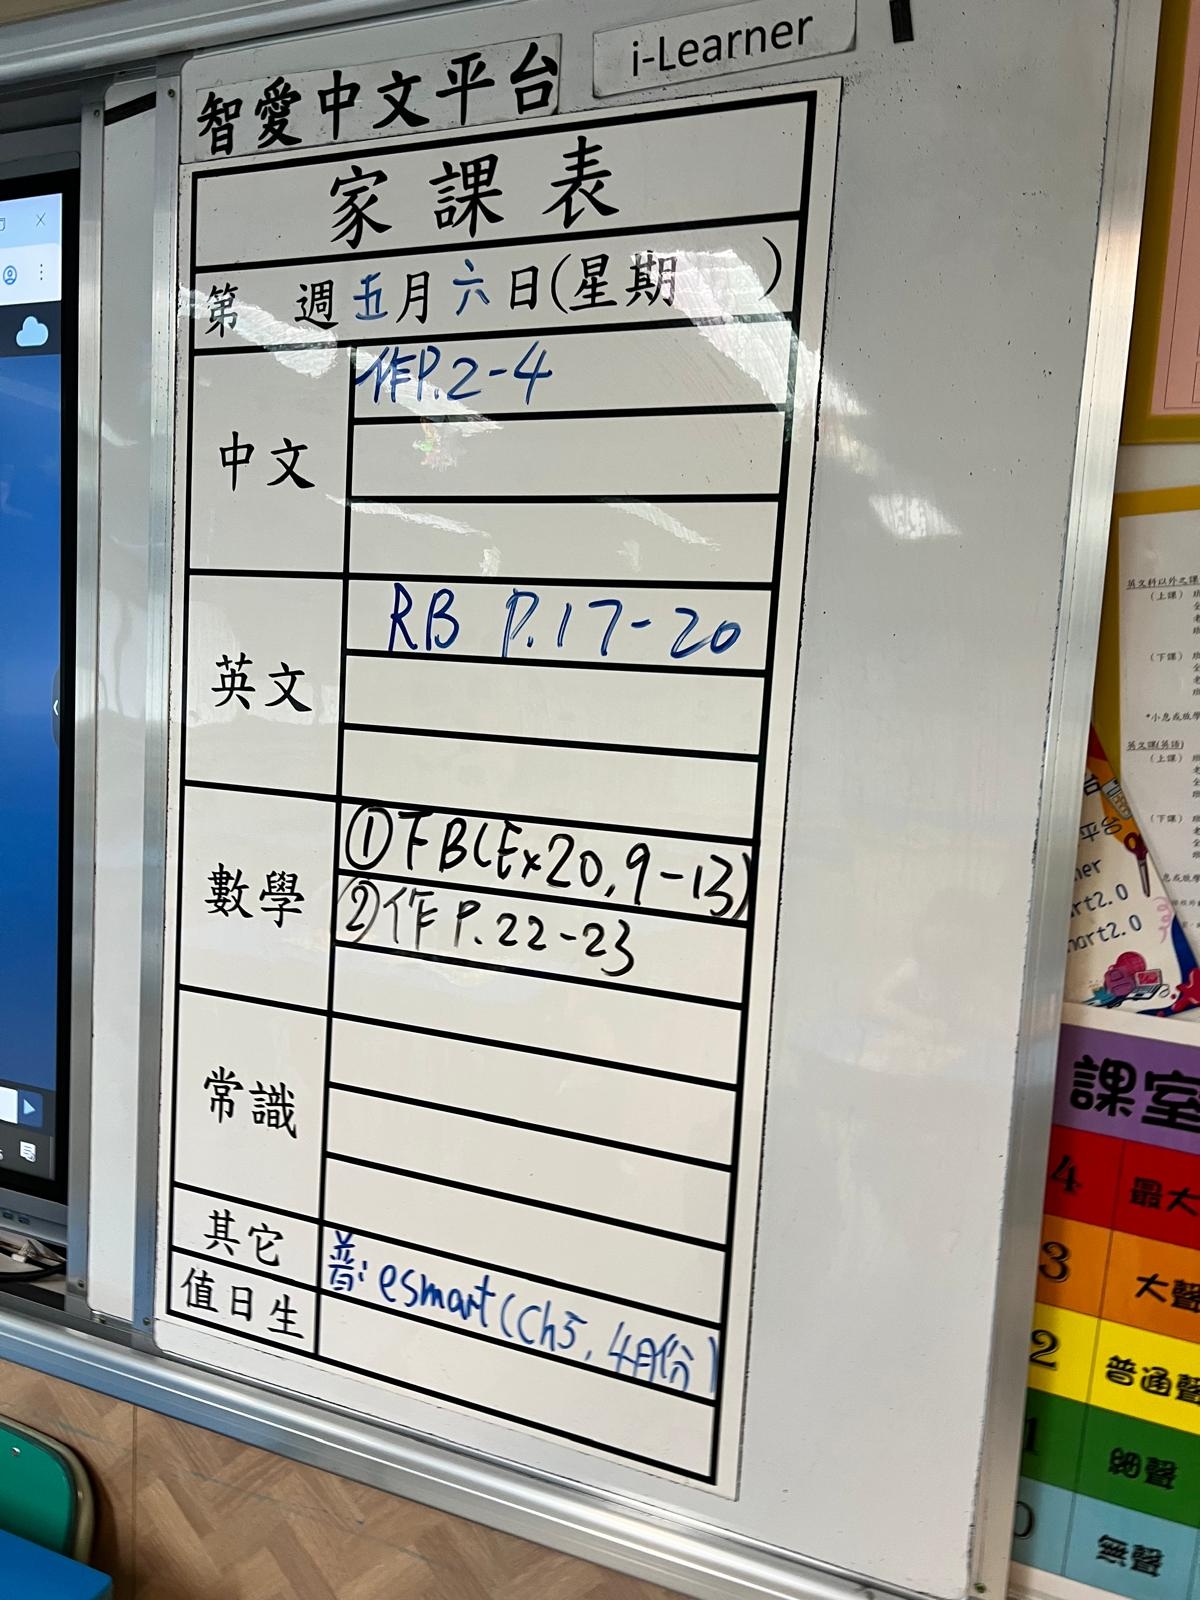 智愛中文平台
i-Learner
家課表
第 週五月六日(星期 )
中文
作P.2-4
英文
RB P.17-20
數學
①TB(Ex20,9-13)
②作P.22-23
常識
其它
普:esmart(Ch5,4月份)
值日生
英文科以外之課
(上課)
(下課)
英文課(英語)
(上課)
(下課)
課室
4 最大
3 大聲
2 普通聲
1 細聲
0 無聲